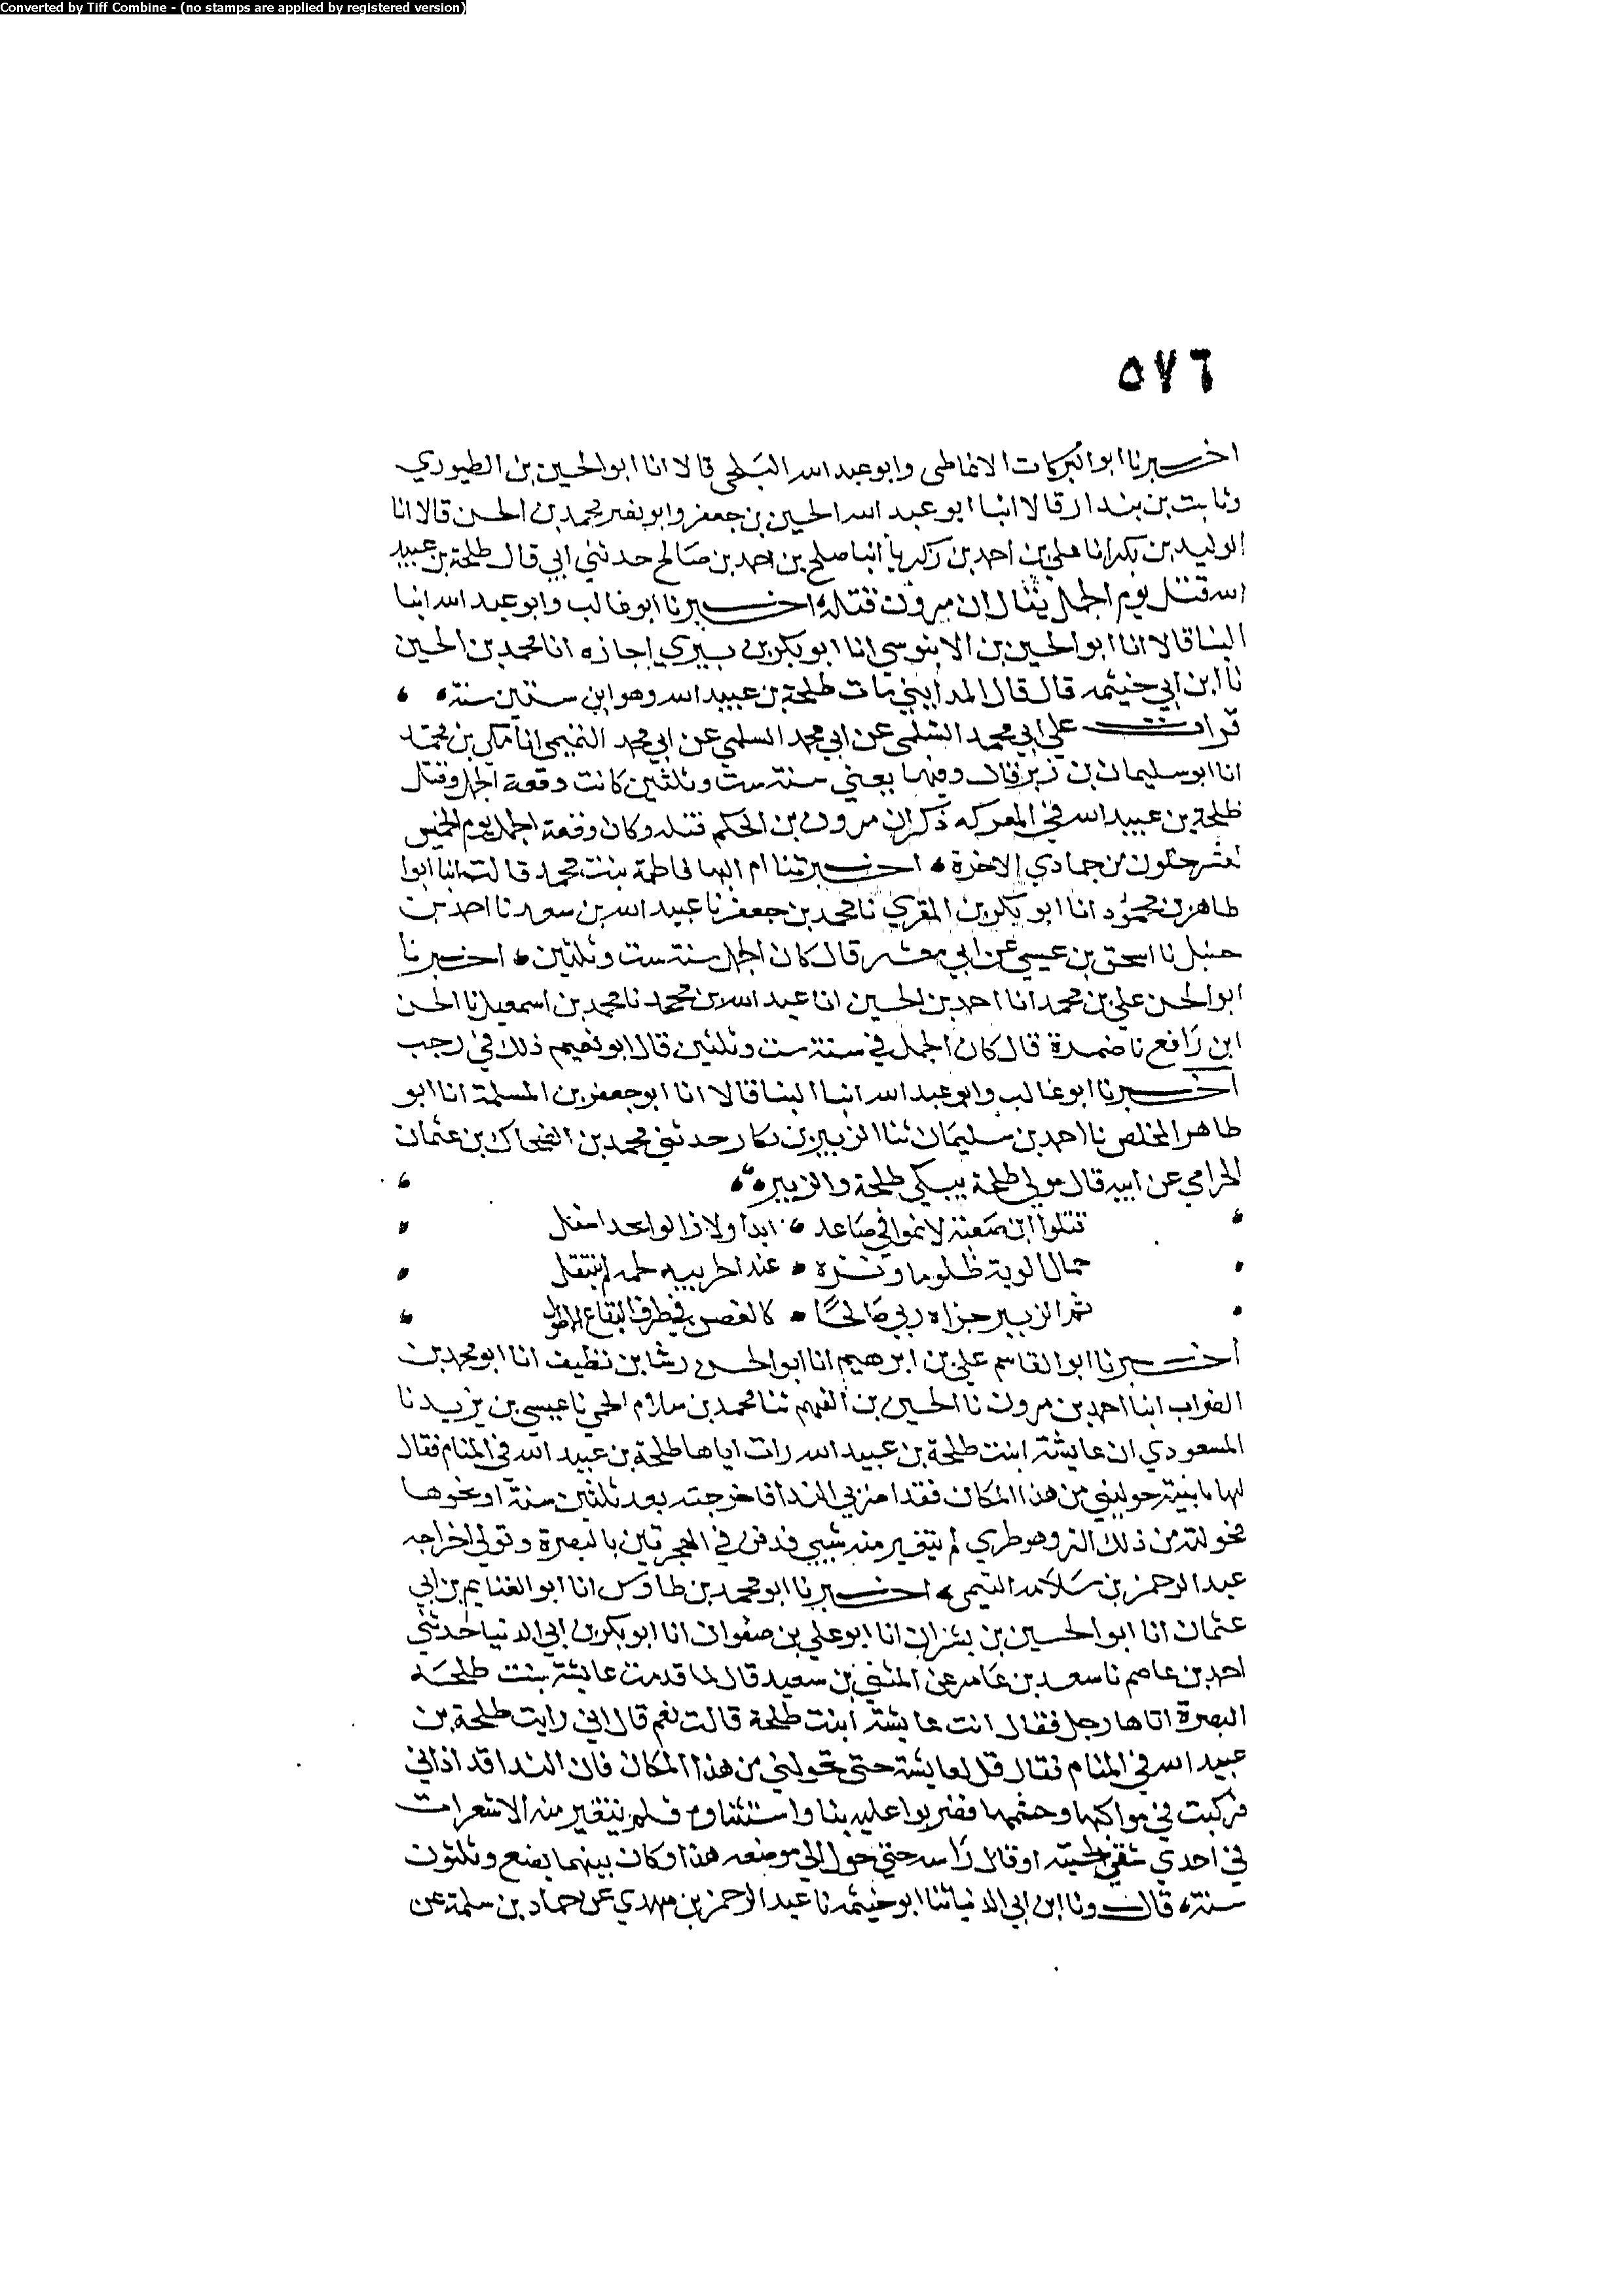 Converted by Tiff Combine - (no stamps are applied by registered version)
٥٧٦
اخبرنا ابو البركات الانماطي وابو عبد الله البلخي قالا انا ابو الحسين بن الطيوري
وثابت بن بندار قالا انبا ابو عبد الله الحسين بن جعفر وابو نصر محمد بن الحسن قالا انا
الوليد بن بكر انا علي بن احمد بن زكريا انبا صالح بن احمد بن صالح حدثني ابي قال طلحة بن عبيد
الله قتل يوم الجمل يقال ان مرون قتله اخبرنا ابو غالب وابو عبد الله ابنا
البنا قالا انا ابو الحسين بن الابنوسي انا ابو بكر بن بيري اجازه انا محمد بن الحسين
نا ابن ابي خيثمه قال قال المدايني مات طلحة بن عبيد الله وهو ابن ستين سنة
قرات علي ابي محمد السلمي عن ابي محمد التميمي انا مكي بن محمد
انا ابو سليمان بن زبر قال وفيها يعني سنة ست وثلثين كانت وقعة الجمل وقتل
طلحة بن عبيد الله في المعركه ذكر ان مرون بن الحكم قتله وكان وقعة الجمل يوم الخميس
لعشر خلون من جمادي الاخرة اخبرتنا ام البها فاطمة بنت محمد قالت انبا ابوا
طاهر بن محمود انا ابو بكر بن المقري نا محمد بن جعفر نا عبيد الله بن سعد نا احمد بن
حنبل نا اسحق بن عيسي عن ابي معشر قال كان الجمل سنة ست وثلثين اخبرنا
ابو الحسن علي بن محمد انا احمد بن الحسين انا عبد الله بن محمد نا محمد بن اسمعيل نا الحسن
ابن رافع نا ضمرة قال كان الجمل في سنة ست وثلثين قال ابو نعيم ذلك في رجب
اخبرنا ابو غالب وابو عبد الله ابنا البنا قالا انا ابو جعفر بن المسلمة انا ابو
طاهر المخلص نا احمد بن سليمان ثنا الزبير بن بكار حدثني محمد بن الضحاك بن عثمان
الحزامي عن ابيه قال مولي طلحة يبكي طلحة والزبير
قتلوا ابن صعبة لا نموا في صاعد ابدا ولا زالوا بحد
حمال الوية عند الحرب
ثم الزبير جزاه ربي صالحًا كالغصن في طرف
اخبرنا ابو القاسم علي بن ابرهيم انا ابو الحسن رشا بن نظيف انا ابو محمد بن
الضراب انبا احمد بن مرون نا الحسين بن الفهم ثنا محمد بن سلام الجمحي نا عيسي بن يزيد نا
المسعودي ان عايشة ابنت طلحة بن عبيد الله رات اباها طلحة بن عبيد الله في المنام فقال
لها يا بنية حوليني من هذا المكان فقد اضر بي الندا فاخرجته بعد ثلثين سنة او نحوها
فحولته من ذلك النز وهو طري لم يتغير منه شيي فدفن في الهجرتين بالبصرة وتولي اخراجه
عبد الرحمن بن سلامه التيمي اخبرنا ابو محمد بن طاوس انا ابو الغنايم بن ابي
عثمان انا ابو الحسين بن بشران انا ابو علي بن صفوان انا ابو بكر بن ابي الدنيا حدثني
احمد بن عاصم نا سعيد بن عامر عن المثني بن سعيد قال لما قدمت عايشة بنت طلحة
البصرة اتاها رجل فقال انت عايشة ابنت طلحة قالت نعم قال اني رايت طلحة بن
عبيد الله في المنام فقال قل لعايشة حتي تحولني من هذا المكان فان الندا قد اذاني
فركبت في مواكبها وحشمها فضربوا عليه بنا واستثناوه فلم يتغير منه الا شعرات
في احدي شقي لحيته او قال راسه حتي حول الي موضعه هذا وكان بينهما بضع وثلثون
سنة قال ونا ابن ابي الدنيا ثنا ابو خيثمه نا عبد الرحمن بن مهدي عن حماد بن سلمة عن